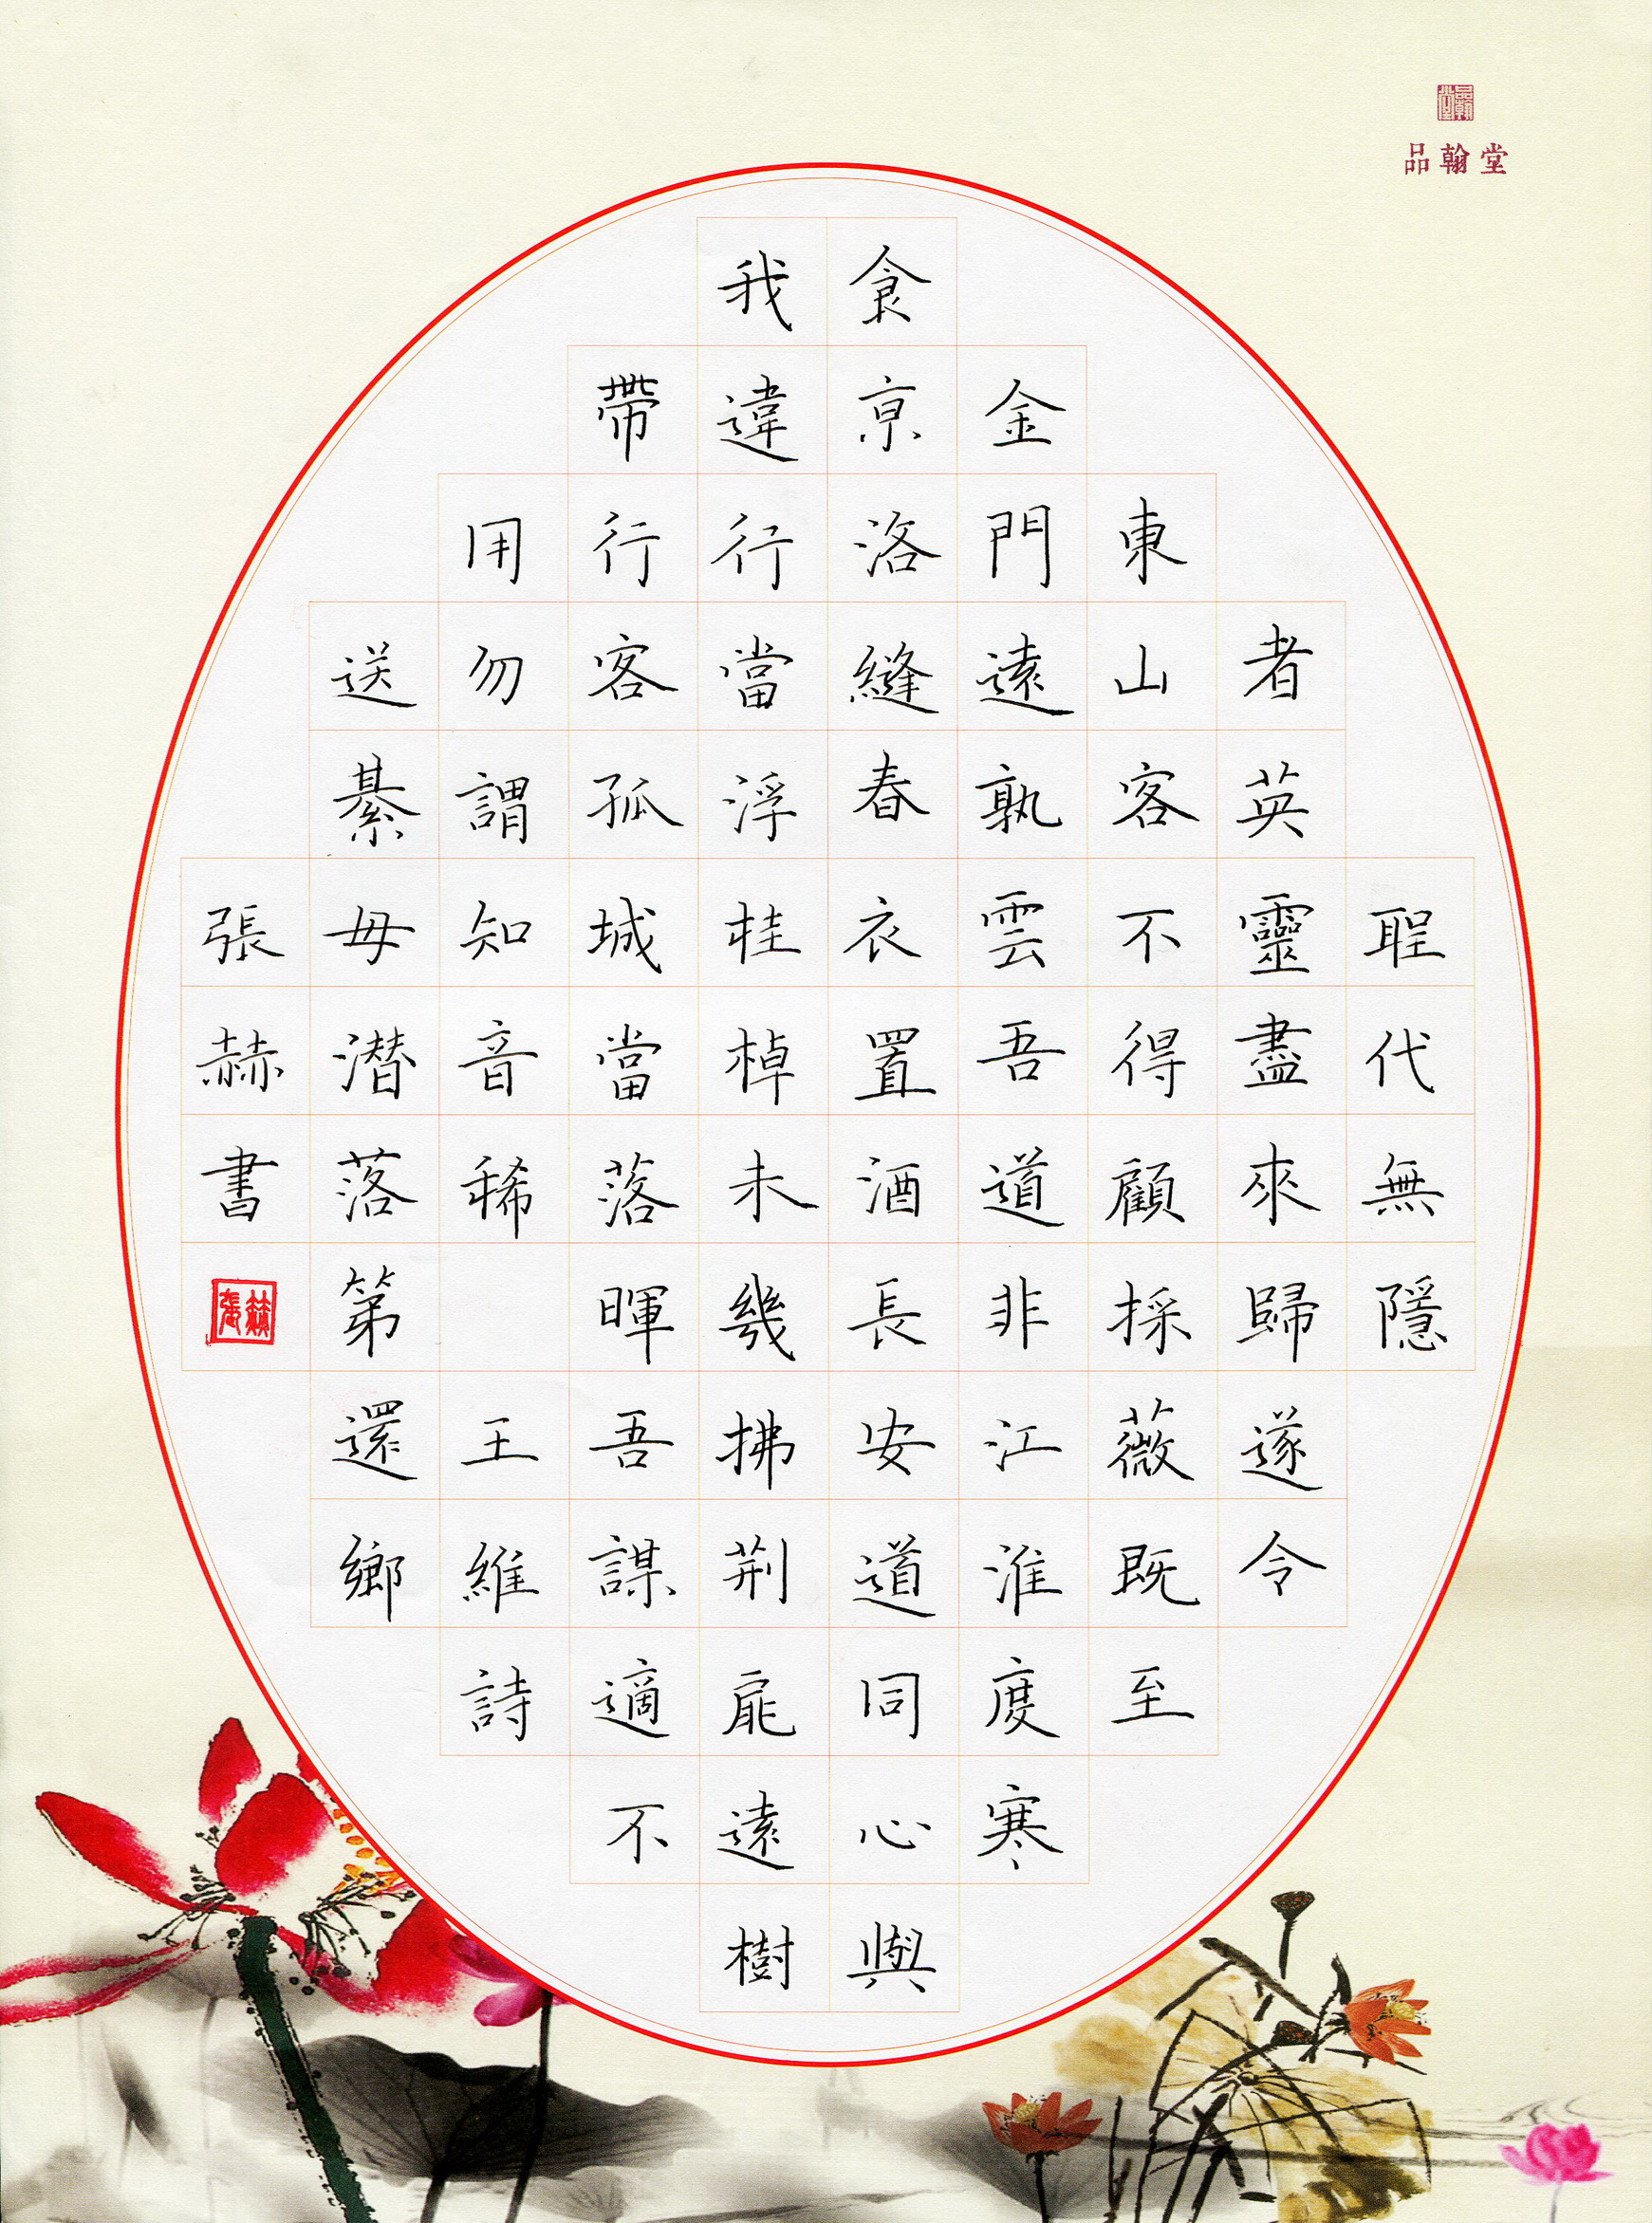 品翰堂
品翰堂
聖代無隱
者英靈盡來歸遂令
東山客不得顧採薇既至
金門遠孰雲吾道非江淮度寒
食京洛縫春衣置酒長安道同心與
我違行當浮桂棹未幾拂荆扉遠樹
帶行客孤城當落暉吾謀適不
用勿謂知音稀 王維詩
送綦毋潜落第還鄉
張赫書
張赫